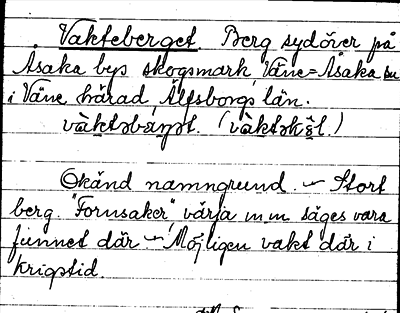 Vakteberget. Berg sydöver på
Åsaka bys skogsmark, Väne=Åsaka sn
i Väne härad, Älfsborgs län.
Okänd namngrund. – Stort
berg. "Fornsaker", värja m.m. säges vara
funnet där – Möjligen vakt där i
krigstid.